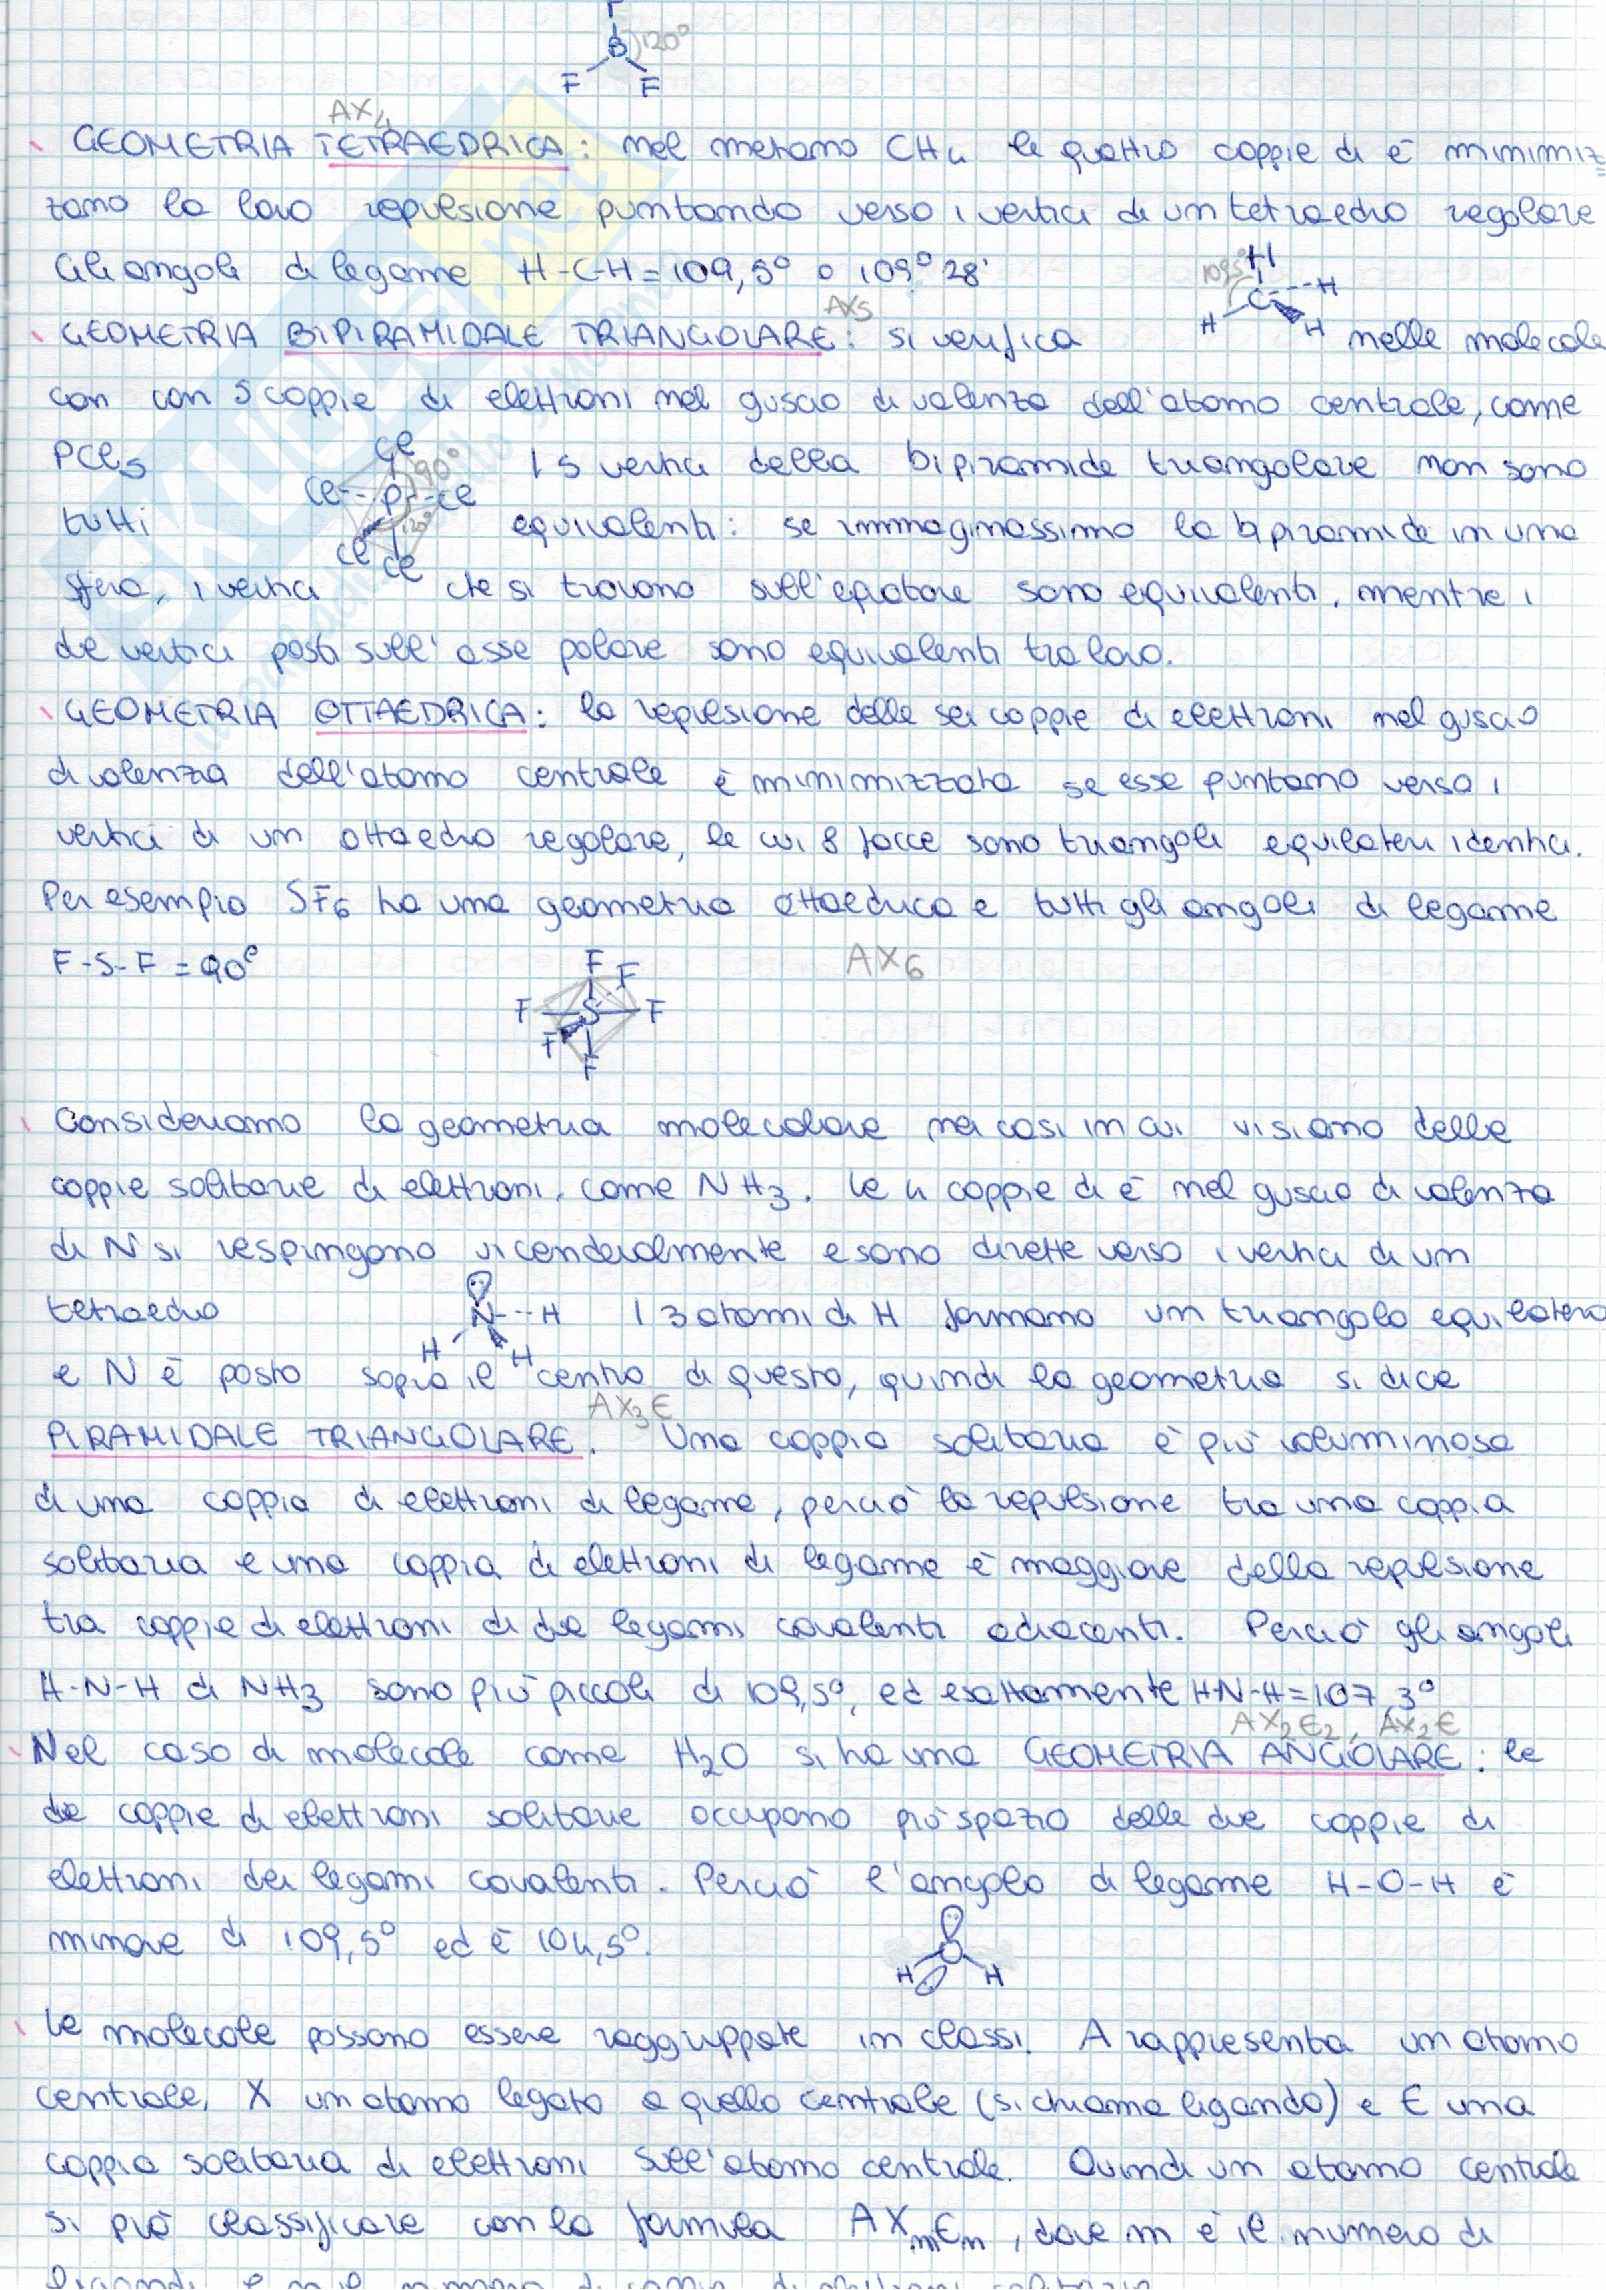 F
B 120°
F F
AX4
GEOMETRIA TETRAEDRICA: nel metano CH4 le quattro coppie di e⁻ minimiz
zano la loro repulsione puntando verso i vertici di un tetraedro regolare
Gli angoli di legame H-C-H = 109,5° o 109° 28'
109,5° H C H H H
AX5
GEOMETRIA BIPIRAMIDALE TRIANGOLARE: si verifica nelle molecole
con con 5 coppie di elettroni nel guscio di valenza dell'atomo centrale, come
PCl5 I 5 vertici della bipiramide triangolare non sono
Cl 90° Cl P Cl 120° Cl Cl
tutti equivalenti: se immaginassimo la bipiramide in una
sfera, i vertici che si trovano sull'equatore sono equivalenti, mentre i
due vertici posti sull'asse polare sono equivalenti tra loro.
GEOMETRIA OTTAEDRICA: la repulsione delle sei coppie di elettroni nel guscio
di valenza dell'atomo centrale è minimizzata se esse puntano verso i
vertici di un ottaedro regolare, le cui 8 facce sono triangoli equilateri identici.
Per esempio SF6 ha una geometria ottaedrica e tutti gli angoli di legame
F-S-F = 90° AX6
F F F S F F F
Consideriamo la geometria molecolare nei casi in cui vi siano delle
coppie solitarie di elettroni, come NH3. Le 4 coppie di e⁻ nel guscio di valenza
di N si respingono vicendevolmente e sono dirette verso i vertici di un
tetraedro N H H H I 3 atomi di H formano un triangolo equilatero
e N è posto sopra il centro di questo, quindi la geometria si dice
AX3E
PIRAMIDALE TRIANGOLARE. Una coppia solitaria è più voluminosa
di una coppia di elettroni di legame, perciò la repulsione tra una coppia
solitaria e una coppia di elettroni di legame è maggiore della repulsione
tra coppie di elettroni di due legami covalenti adiacenti. Perciò gli angoli
H-N-H di NH3 sono più piccoli di 109,5°, ed esattamente H-N-H = 107,3°
AX2E2, AX2E
Nel caso di molecole come H2O si ha una GEOMETRIA ANGOLARE: le
due coppie di elettroni solitarie occupano più spazio delle due coppie di
elettroni dei legami covalenti. Perciò l'angolo di legame H-O-H è
minore di 109,5° ed è 104,5°.
O H H
Le molecole possono essere raggruppate in classi. A rappresenta un atomo
centrale, X un atomo legato a quello centrale (si chiama ligando) e E una
coppia solitaria di elettroni sull'atomo centrale. Quindi un atomo centrale
si può classificare con la formula AXmEn, dove m è il numero di